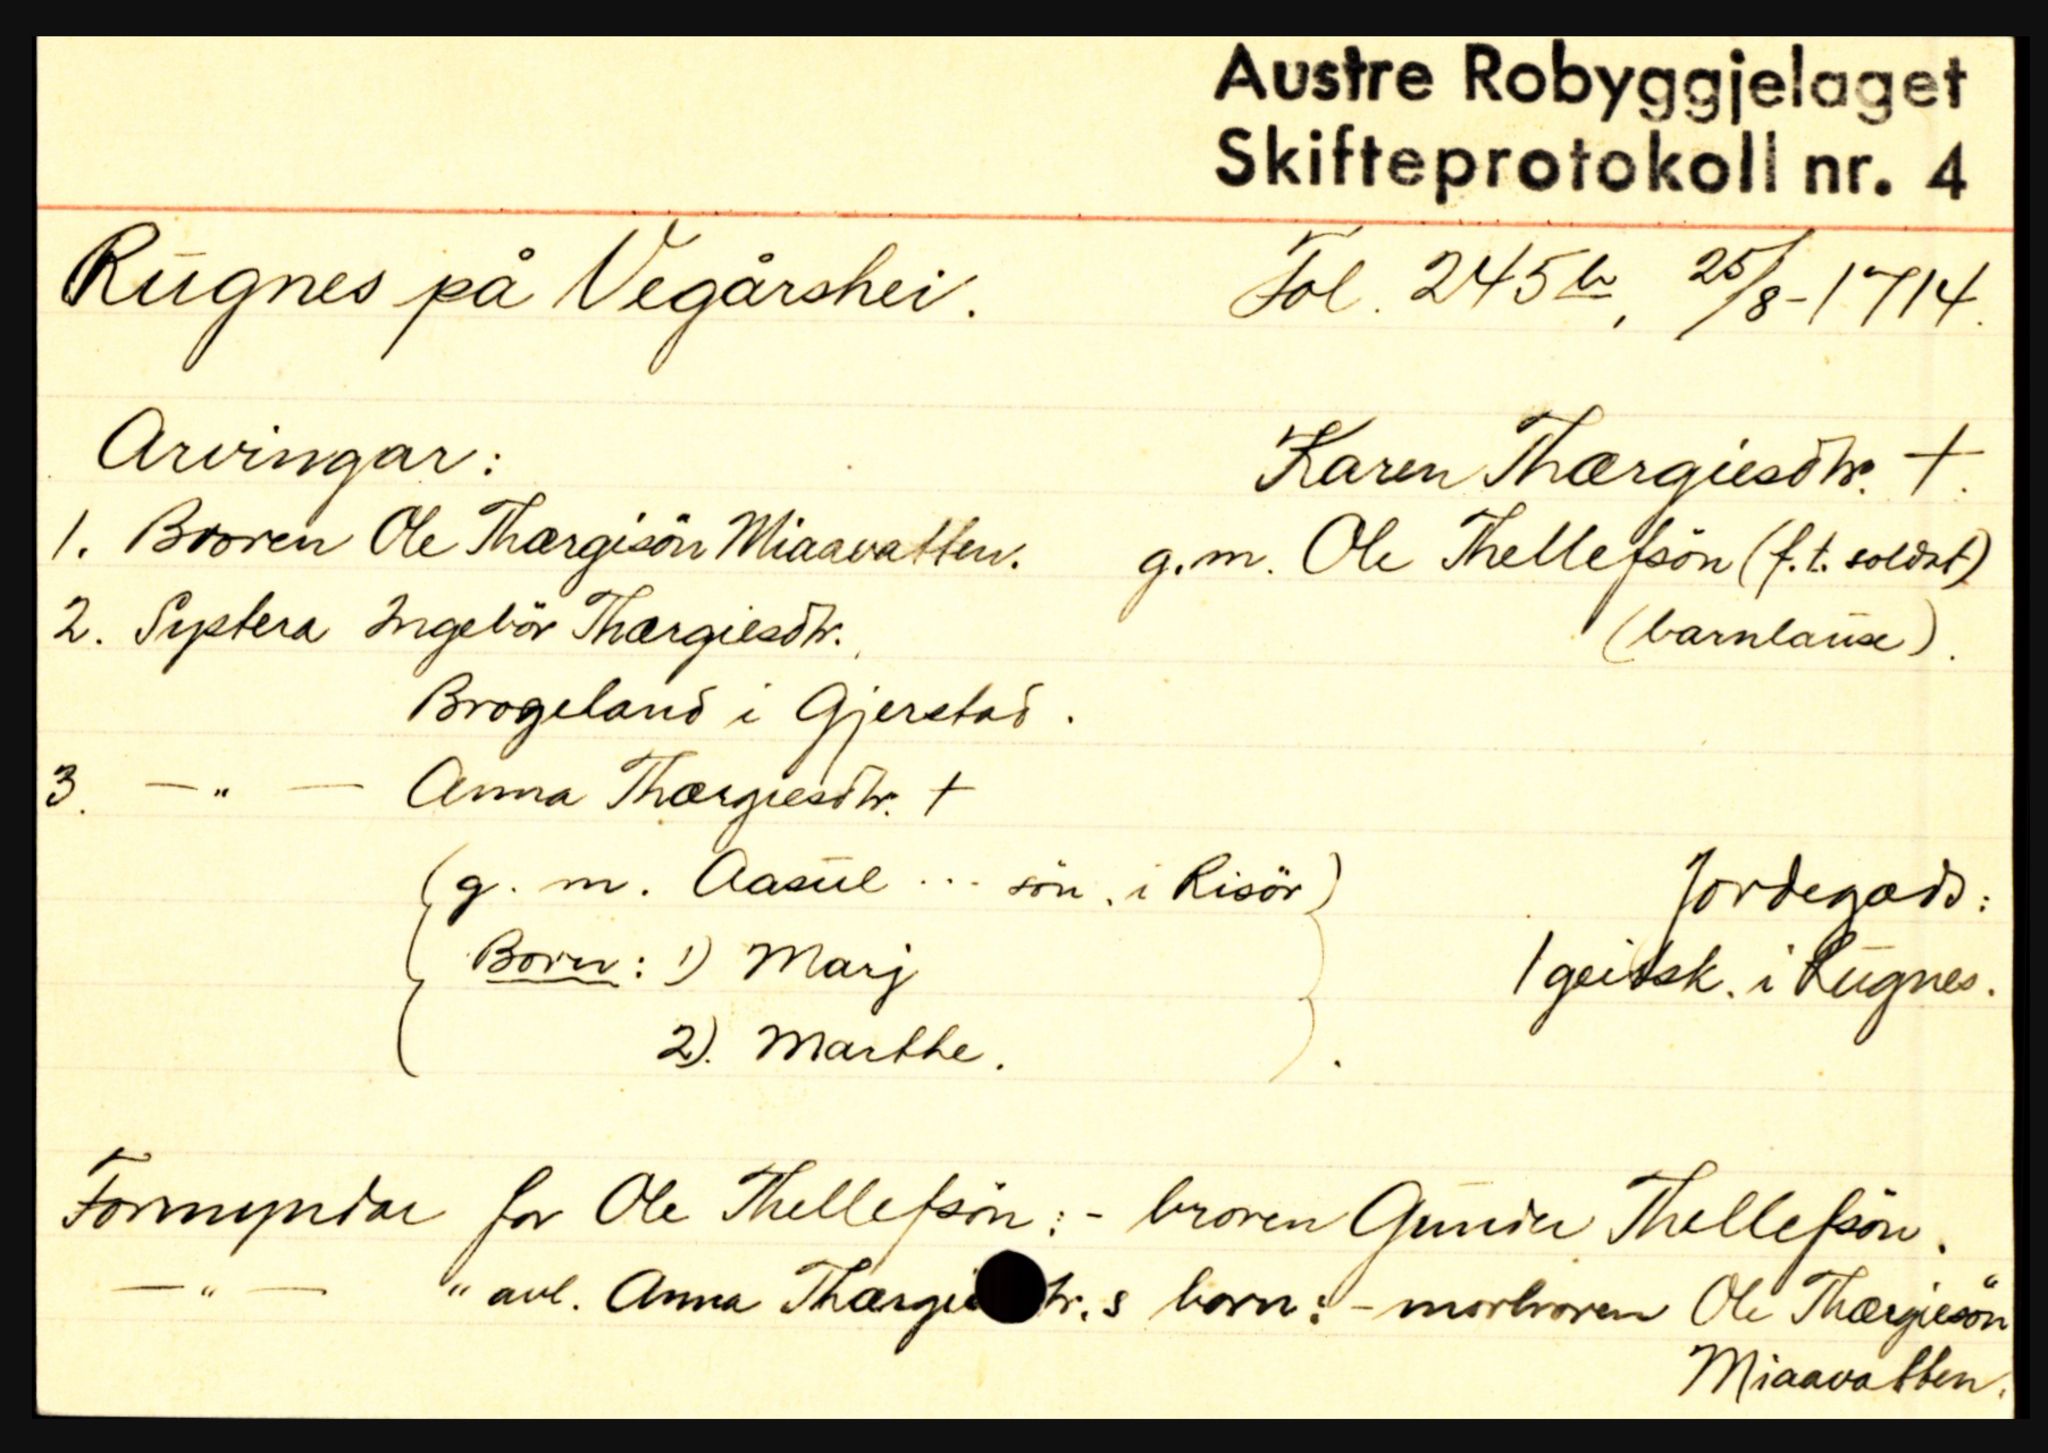 Austre Robyggjelaget
Skifteprotokoll nr. 4
Rūgnes på Vegårshei. Fol. 245b, 25/8-1714.
Arvingar: Karen Thærgiesdtr. +.
1. Broren Ole Thærgisön Miaavatten. g.m. Ole Thellefsön (f.t. soldat)
2. Systera Ingebör Thærgiesdtr. (barnlaūse).
Brogeland i Gjerstad.
3. —„— Anna Thærgiesdtr. +
(g. m. Aasūl ... sön. i Risör)
Born: 1) Marj
2). Marthe.
Jordegods:
1 geitsk. i Rūgnes.
Formyndar for Ole Thellefsön: - broren Gūnder Thellefsön.
—„— „ avl. Anna Thærgie tr.s born: - morbroren Ole Thærgiesön
Miaavatten.